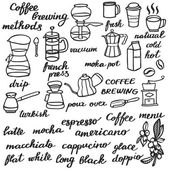 Coffee
brewing
methods
fresh
vacuum
natural
cold
hot
french
press
moka-pot
drip
COFFEE
BREWING
turkish
pour over
espresso
coffee menu
latte mocha americano
macchiato cappucino glace
flat white long black doppio